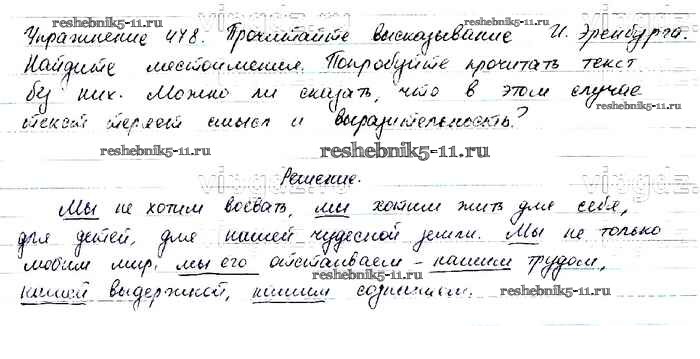 reshebnik5-11.ru
Упражнение 478. Прочитайте высказывание И. Эренбурга.
Найдите местоимения. Попробуйте прочитать текст
без них. Можно ли сказать, что в этом случае
reshebnik5-11.ru
текст теряет смысл и выразительность?
reshebnik5-11.ru reshebnik5-11.ru
Решение.
Мы не хотим воевать, мы хотим жить для себя,
для детей, для нашей чудесной земли. Мы не только
любим мир, мы его отстаиваем - нашим трудом,
reshebnik5-11.ru
нашей выдержкой, нашим сознанием.
reshebnik5-11.ru